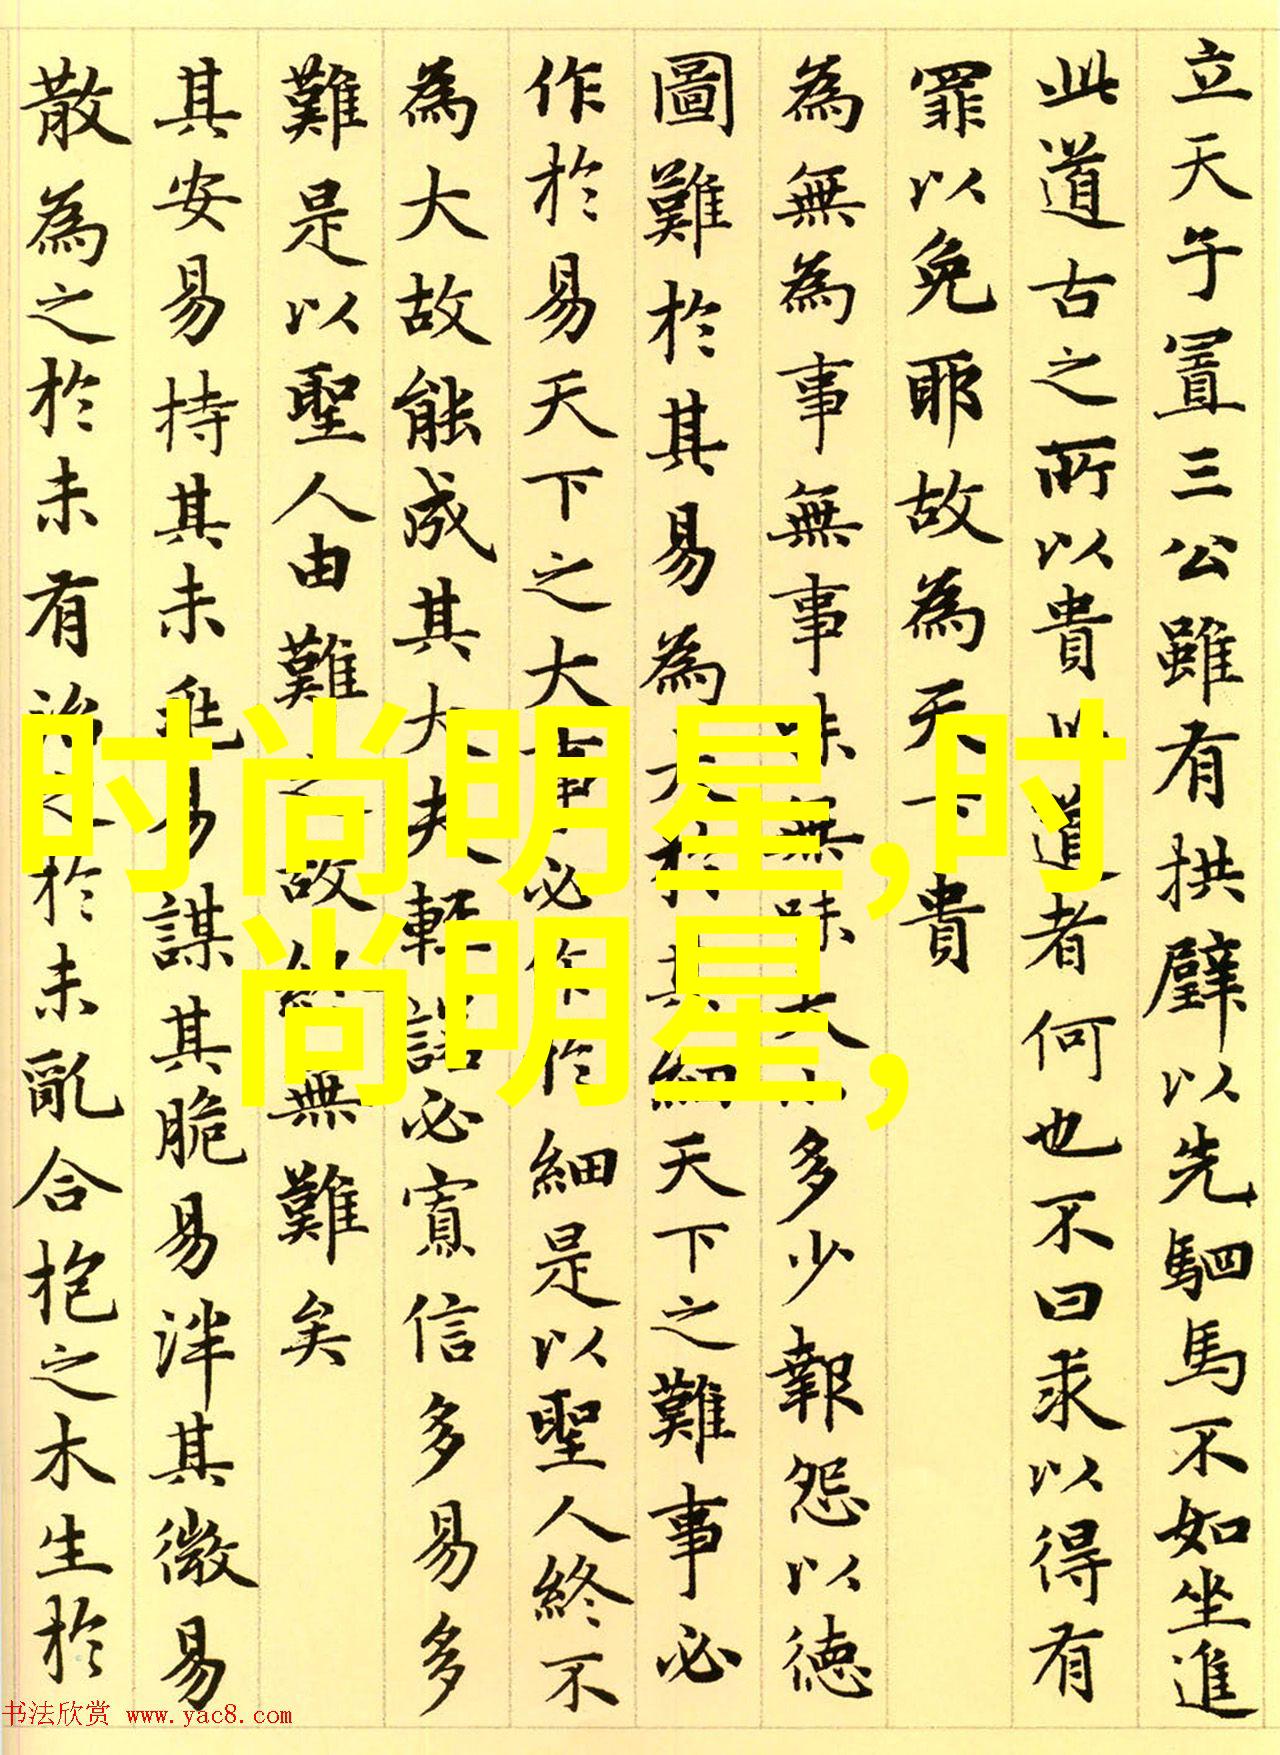 立天子置三公雖有拱璧以先駟馬不如坐進
此道古之所以貴此道者何也不曰求以得有
罪以免耶故為天下貴
為無為事無事味無味大小多少報怨以德
圖難於其易為大於其細天下之難事必
作於易天下之大事必作於細是以聖人終不
為大故能成其大夫輕諾必寡信多易多
難是以聖人由難之故終無難矣
其安易持其未兆易謀其脆易泮其微易
散為之於未有治之於未亂合抱之木生於
时尚明星,时
尚明星,
书法欣赏 www.yac8.com